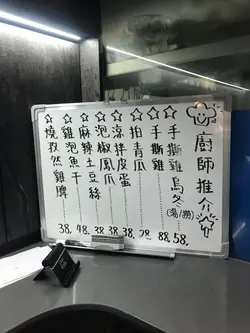 廚師推介
☆手撕雞烏冬(湯/撈) 58.
☆手撕雞 88.
☆拍青瓜 28.
☆涼拌皮蛋 38.
☆泡椒鳳爪 38.
☆麻辣土豆絲 38.
☆雞泡魚干 48.
☆燒孜然雞脾 38.